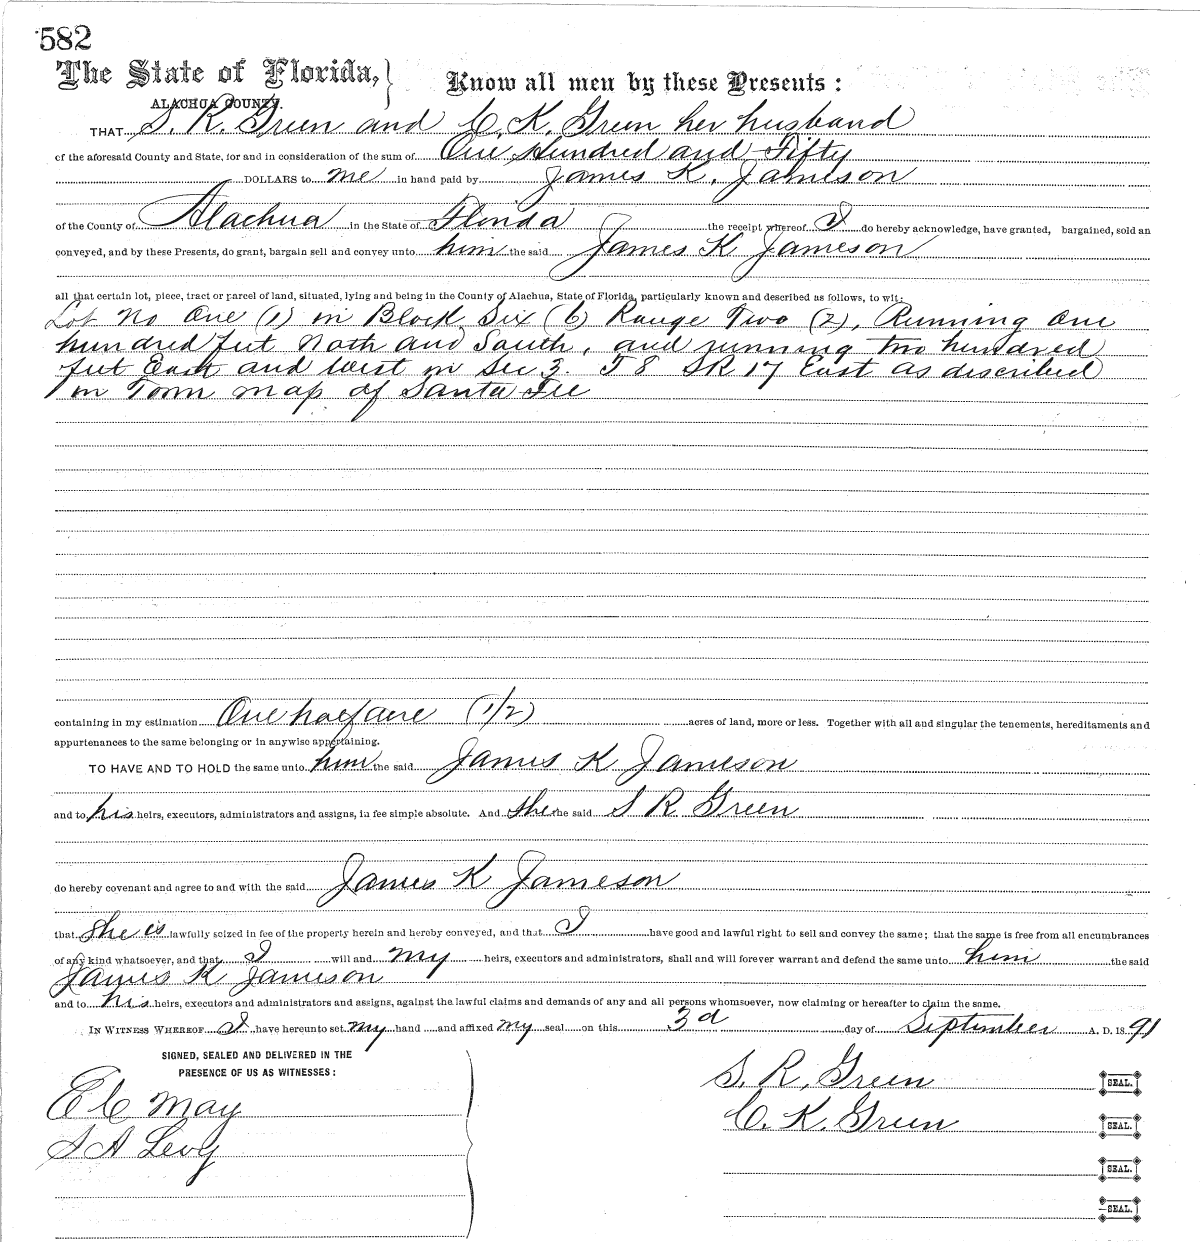 582
The State of Florida,} Know all men by these Presents:
ALACHUA COUNTY.
THAT S. R. Green and C. K. Green her husband
of the aforesaid County and State, for and in consideration of the sum of One Hundred and Fifty
DOLLARS to me in hand paid by James K. Jameson
of the County of Alachua in the State of Florida the receipt whereof I do hereby acknowledge, have granted, bargained, sold an
conveyed, and by these Presents, do grant, bargain sell and convey unto him the said James K Jameson
all that certain lot, piece, tract or parcel of land, situated, lying and being in the County of Alachua, State of Florida, particularly known and described as follows, to wit:
Lot No One (1) in Block Six (6) Range Two (2), Running One
hundred feet Noth and South, and running two hundred
feet East and West in Sec 3. T 8 SR 17 East as described
in Town map of Santa Fee
containing in my estimation One half acre (1/2) acres of land, more or less. Together with all and singular the tenements, hereditaments and
appurtenances to the same belonging or in anywise appertaining.
TO HAVE AND TO HOLD the same unto him the said James K Jameson
and to his heirs, executors, administrators and assigns, in fee simple absolute. And she the said S R Green
do hereby covenant and agree to and with the said James K Jameson
that she is lawfully seized in fee of the property herein and hereby conveyed, and that I have good and lawful right to sell and convey the same; that the same is free from all encumbrances
of any kind whatsoever, and that I will and my heirs, executors and administrators, shall and will forever warrant and defend the same unto him the said
James K Jameson
and to his heirs, executors and administrators and assigns, against the lawful claims and demands of any and all persons whomsoever, now claiming or hereafter to claim the same.
IN WITNESS WHEREOF I have hereunto set my hand and affixed my seal on this 3d day of September A. D. 1891
SIGNED, SEALED AND DELIVERED IN THE
PRESENCE OF US AS WITNESSES:
S. R. Green SEAL.
E C May
C. K. Green SEAL.
S A Levy
SEAL.
SEAL.